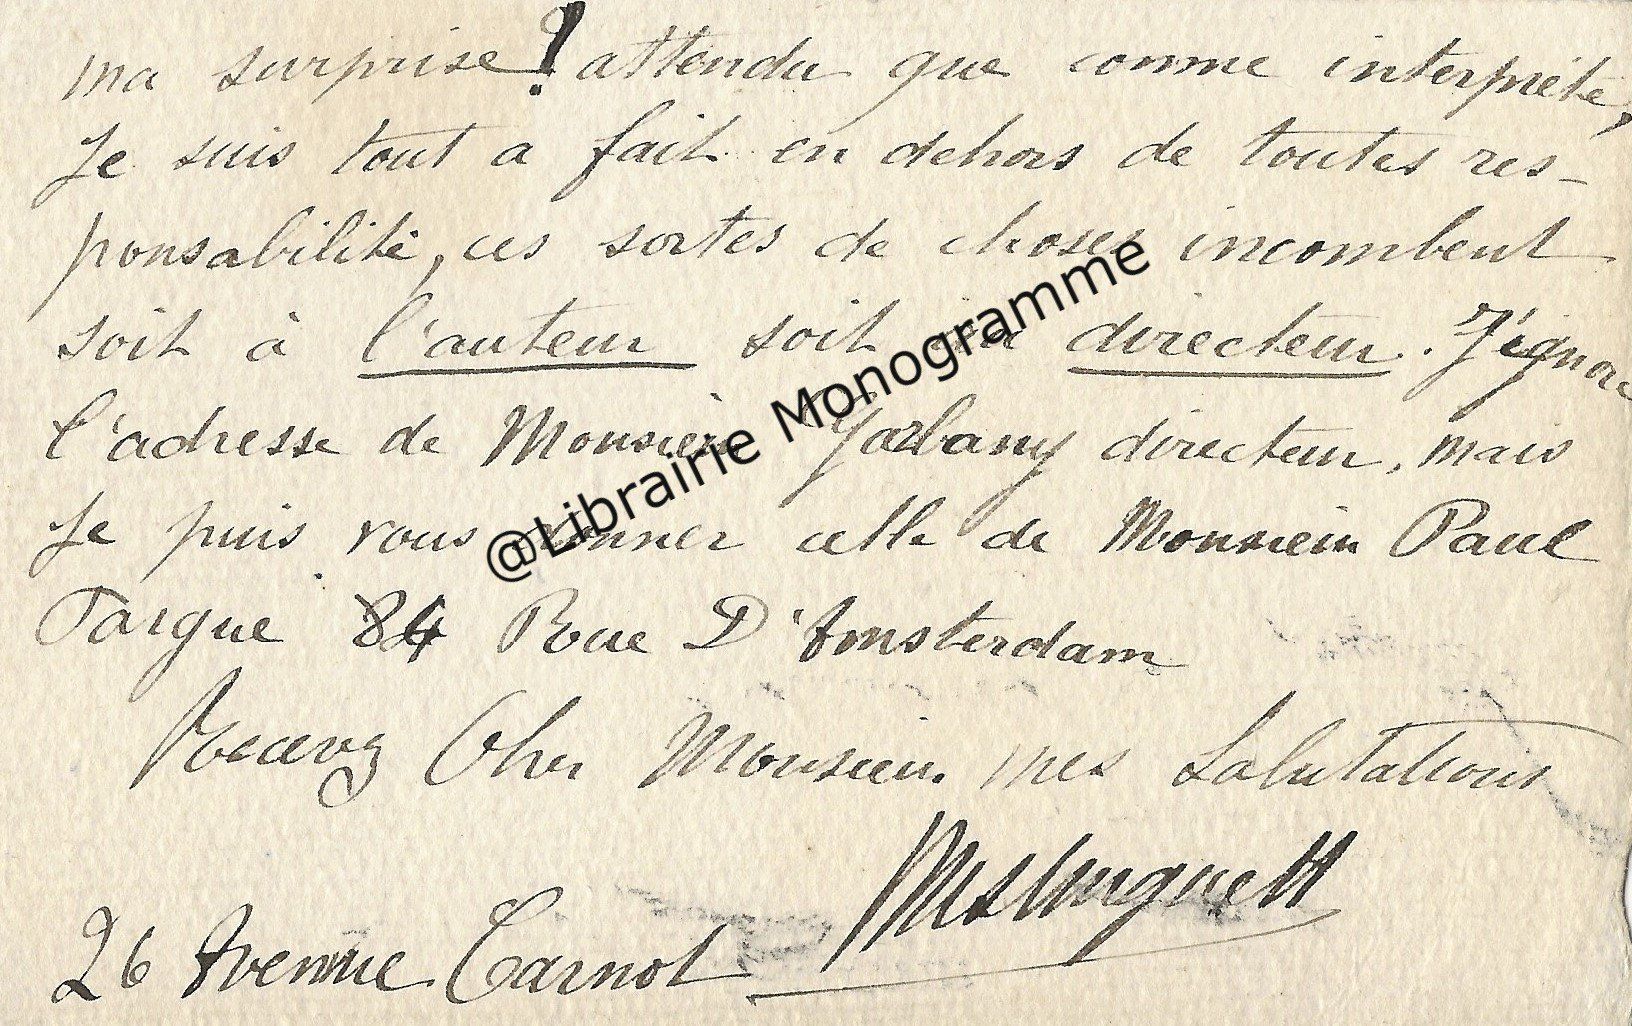 ma surprise! attendu que comme interprète,
Je suis tout a fait en dehors de toutes res-
ponsabilité, ces sortes de choses incombent
soit à l'auteur soit au directeur. J'ignore
l'adresse de Monsieur Garbany directeur, mais
Je puis vous donner celle de Monsieur Paul
Fargue 84 Rue D'Amsterdam
Recevez Cher Monsieur mes Salutations
Mistinguett
26 Avenue Carnot
@Librairie Monogramme